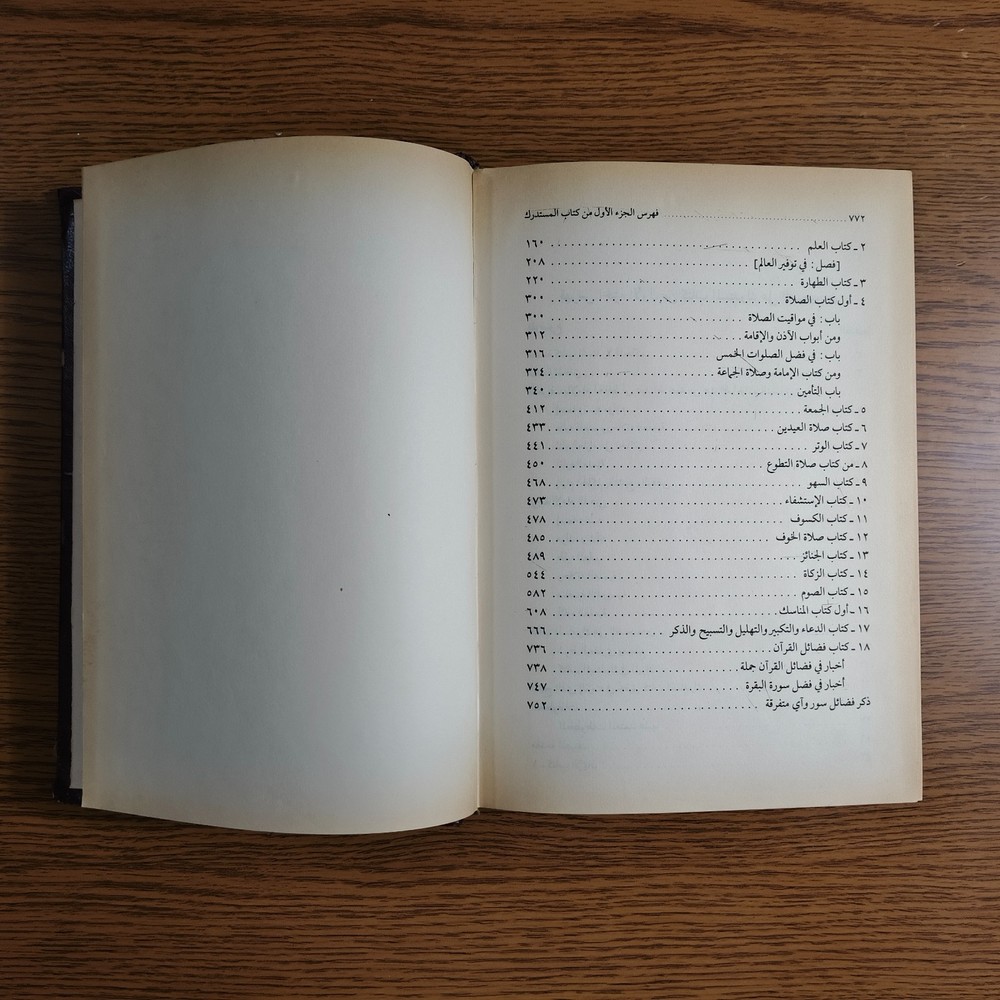 ٧٧٢ ........ فهرس الجزء الأول من كتاب المستدرك
٢ ـ كتاب العلم ........ ١٦٠
[فصل: في توقير العالم] ........ ٢٠٨
٣ ـ كتاب الطهارة ........ ٢٢٠
٤ ـ أول كتاب الصلاة ........ ٣٠٠
باب: في مواقيت الصلاة ........ ٣٠٠
ومن أبواب الأذن والإقامة ........ ٣١٢
باب: في فضل الصلوات الخمس ........ ٣١٦
ومن كتاب الإمامة وصلاة الجماعة ........ ٣٢٤
باب التأمين ........ ٣٤٠
٥ ـ كتاب الجمعة ........ ٤١٢
٦ ـ كتاب صلاة العيدين ........ ٤٣٣
٧ ـ كتاب الوتر ........ ٤٤١
٨ ـ من كتاب صلاة التطوع ........ ٤٥٠
٩ ـ كتاب السهو ........ ٤٦٨
١٠ ـ كتاب الإستشفاء ........ ٤٧٣
١١ ـ كتاب الكسوف ........ ٤٧٨
١٢ ـ كتاب صلاة الخوف ........ ٤٨٥
١٣ ـ كتاب الجنائز ........ ٤٨٩
١٤ ـ كتاب الزكاة ........ ٥٤٤
١٥ ـ كتاب الصوم ........ ٥٨٢
١٦ ـ أول كتاب المناسك ........ ٦٠٨
١٧ ـ كتاب الدعاء والتكبير والتهليل والتسبيح والذكر ........ ٦٦٦
١٨ ـ كتاب فضائل القرآن ........ ٧٣٦
أخبار في فضائل القرآن جملة ........ ٧٣٨
أخبار في فضل سورة البقرة ........ ٧٤٧
ذكر فضائل سور وآي متفرقة ........ ٧٥٢